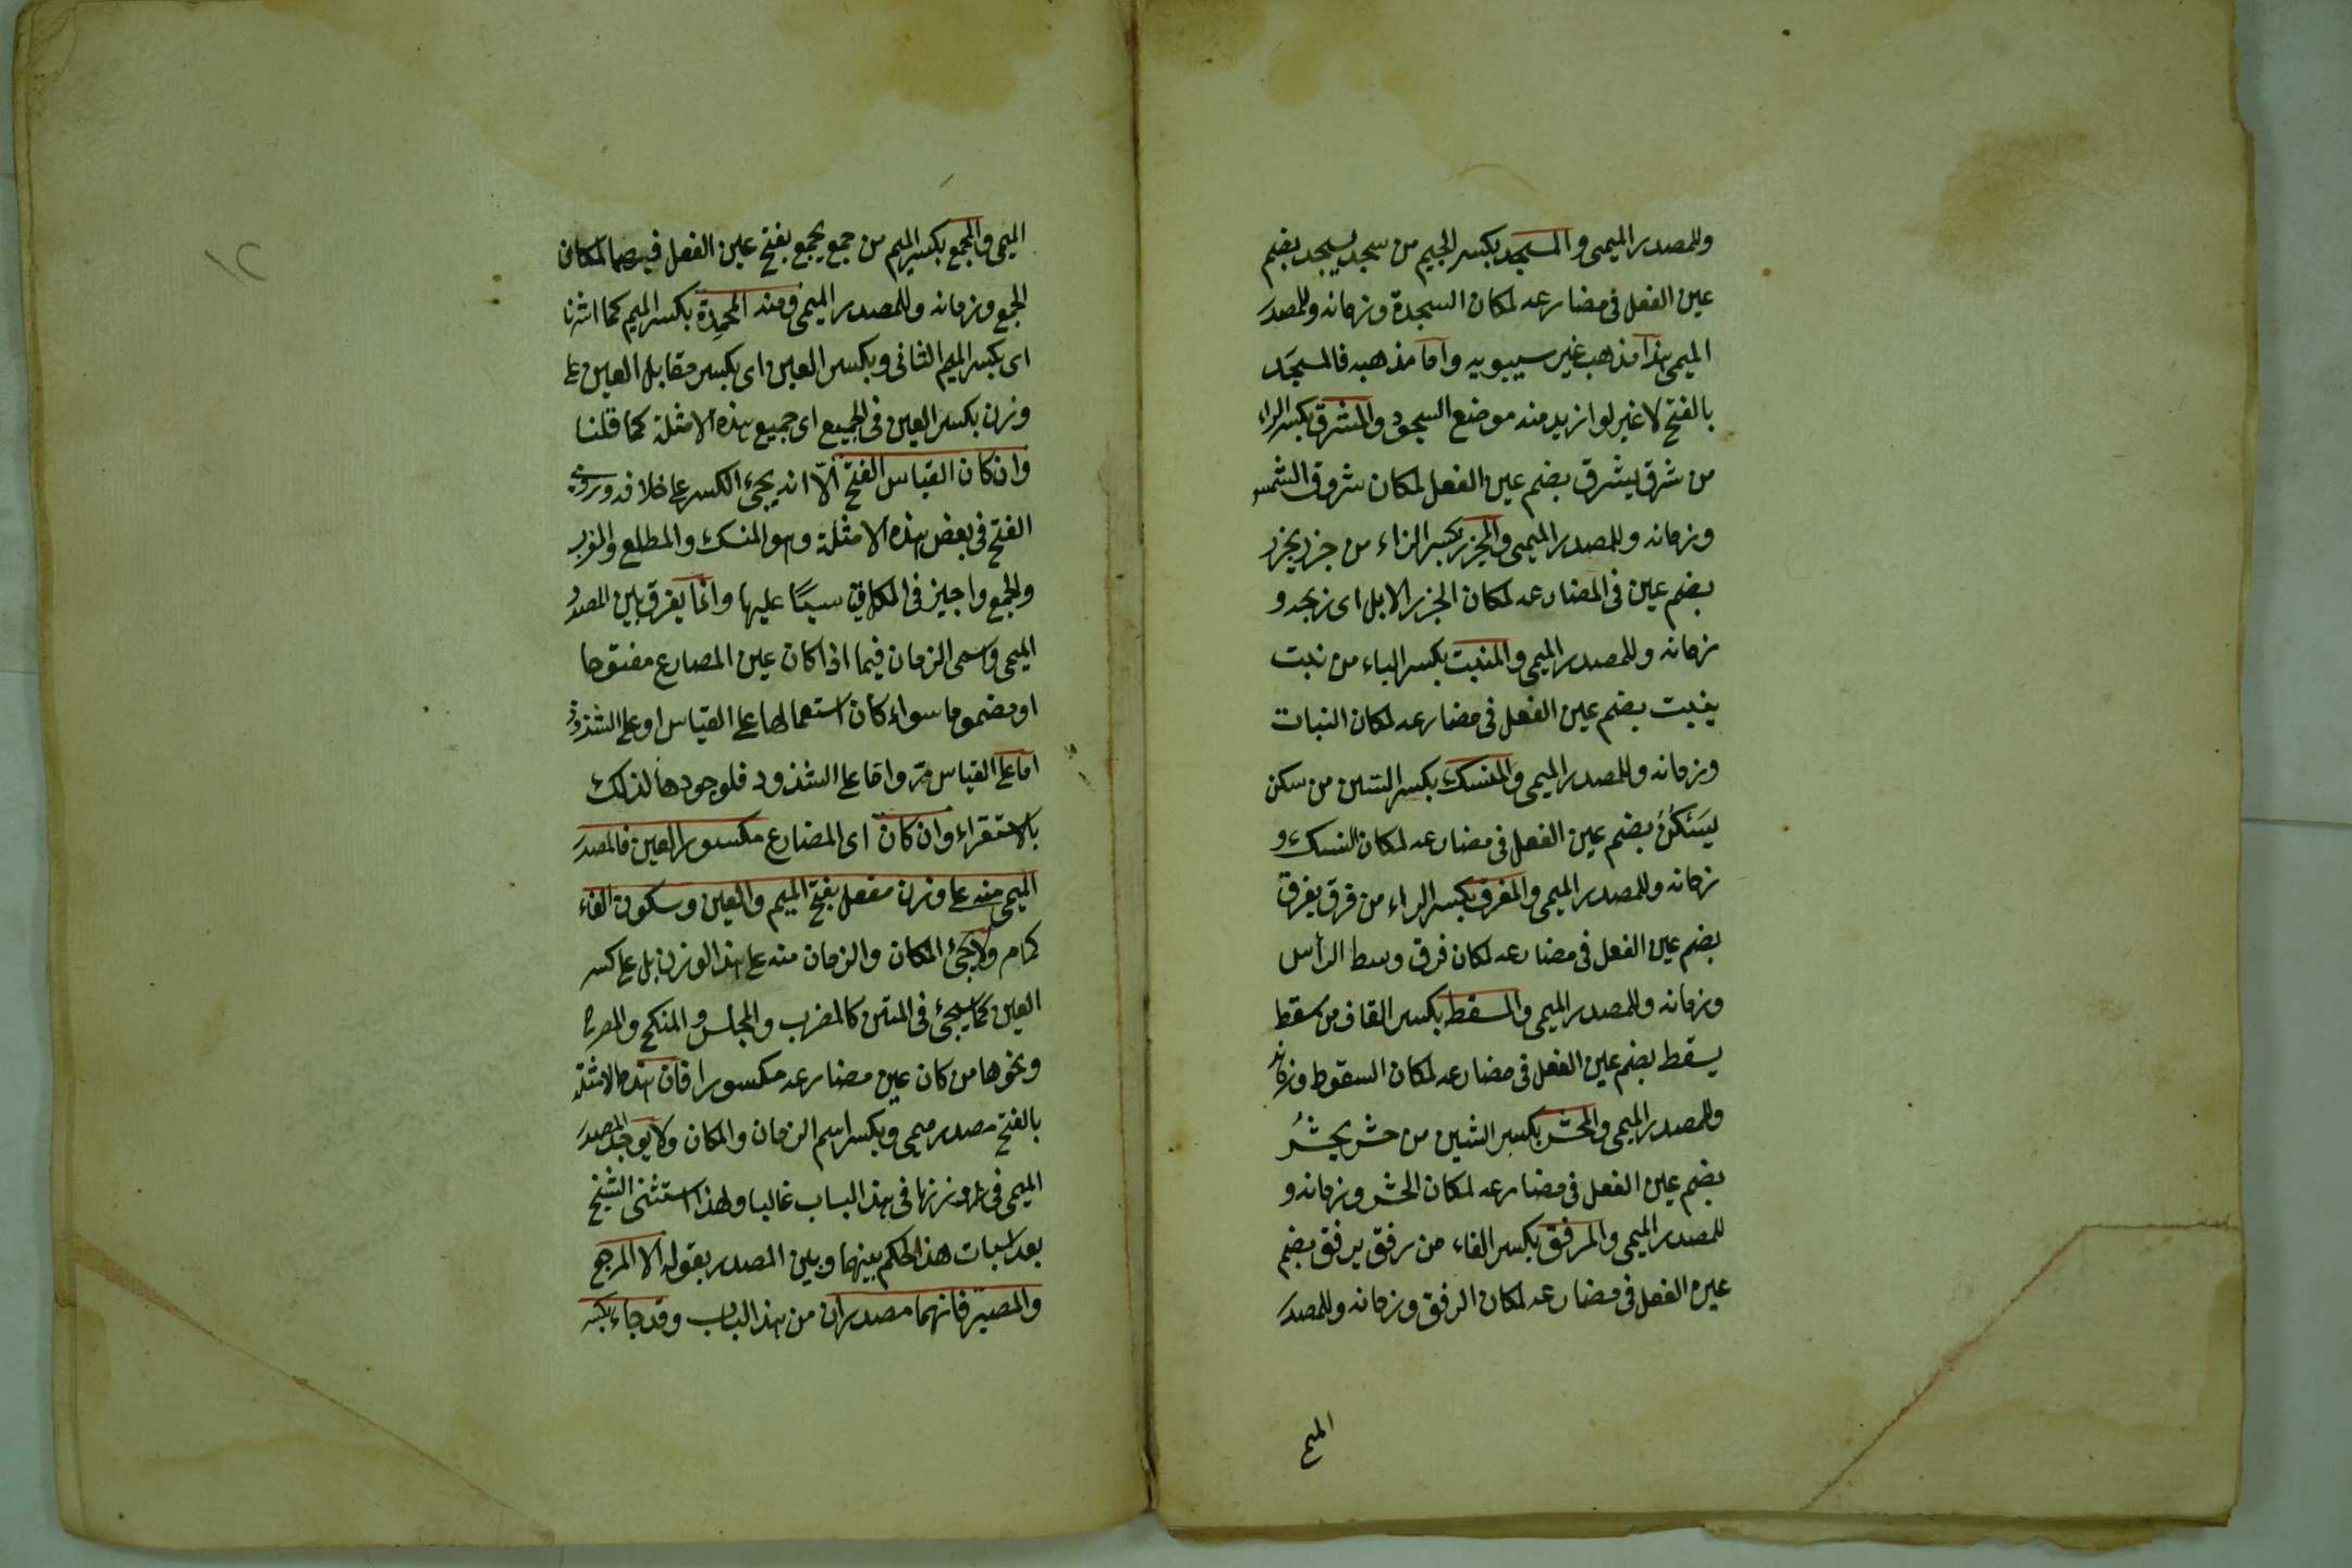 وللمصدر الميمى والمسجد بكسر الجيم من سجد يسجد بضم
عين الفعل فى مضارعه لمكان السجدة وزمانه وللمصدر
الميمى هذا مذهب غير سيبويه واما مذهبه فالمسجد
بالفتح لا غير لو ازيد منه موضع السجود والمشرق بكسر الراء
من شرق يشرق بضم عين الفعل لمكان شروق الشمس
وزمانه وللمصدر الميمى والمجزر بكسر الزاء من جزر يجزر
بضم عين فى المضارعه لمكان الجزر الابل اى نزبحه و
زمانه وللمصدر الميمى والمنبت بكسر الباء من نبت
ينبت بضم عين الفعل فى مضارعه لمكان النبات
وزمانه وللمصدر الميمى والمنسك بكسر السين من سكن
يَسْكُنُ بضم عين الفعل فى مضارعه لمكان النسك و
زمانه وللمصدر الميمى والمفرق بكسر الراء من فرق يفرق
بضم عين الفعل فى مضارعه لمكان فرق وسط الرأس
وزمانه وللمصدر الميمى والمسقط بكسر القاف من سقط
يسقط بضم عين الفعل فى مضارعه لمكان السقوط وزمانه
وللمصدر الميمى والمحشر بكسر الشين من حشر يحشُر
بضم عين الفعل فى مضارعه لمكان الحشر وزمانه و
للمصدر الميمى والمرفق بكسر الفاء من رفق يرفق بضم
عين الفعل فى مضارعه لمكان الرفق وزمانه وللمصدر
الميم
١٢
الميمى والمجمع بكسر الميم من جمع يجمع بفتح عين الفعل فيهما لمكان
الجمع وزمانه وللمصدر الميمى ومنه المحمِدة بكسر الميم كما اشرنا
اى بكسر الميم الثانى وبكسر العين اى بكسر مقابل العين على
وزن بكسر العين فى الجميع اى جميع هذه الامثلة كما قلنا
وان كان القياس الفتح الّا انه يجئ الكسر على خلافه وروى
الفتح فى بعض هذه الامثلة وهو المنسك والمطلع والمغرب
والمجمع واجيز فى الكل عليها وانما يفرق بين المصدر
الميمى واسمى الزمان فيما اذا كان عين المضارع مفتوحا
او مضموما سواء كان استعمالها على القياس او على الشذوذ
اما على القياس مرّ واما على الشذوذ فلوجودها لذلك
بالاستقراء وان كان اى المضارع مكسور العين فالمصدر
الميمى منه على وزن مفعل بفتح الميم والعين وسكون الفاء
كما مر ولا يجئ المكان والزمان منه على هذا الوزن بل على كسر
العين كما سيجئ فى المتن كالمضرب والمجلس والمنكح
ونحوها من كان عين مضارعه مكسورا فان هذه الامثلة
بالفتح مصدر ميمى وبكسر اسم الزمان والمكان ولا يوجد المصدر
الميمى فى وزنها فى هذا الباب غالبا ولهذا استثنى الشيخ
بعد اثبات هذا الحكم بينهما وبين المصدر بقوله الا المرجع
والمصير فانهما مصدران من هذا الباب وقد جاء بكسر